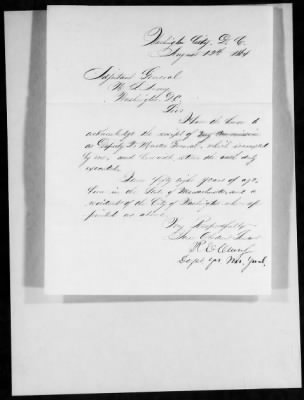 Washington City, D. C.
August 12th 1864
Adjutant General
U. S. Army
Washington D.C.
Sir
I have the honor to
acknowledge the receipt of my commission
as Deputy Qr Master General, which is accepted
by me, and herewith return the oath duly
executed.
I am fifty eight years of age,
born in the State of Massachusetts and a
resident of the City of Washington when ap
pointed as above.
Very Respectfully
Your Obdt Servt
R E Clary
Dept Qr Mr. Genl.